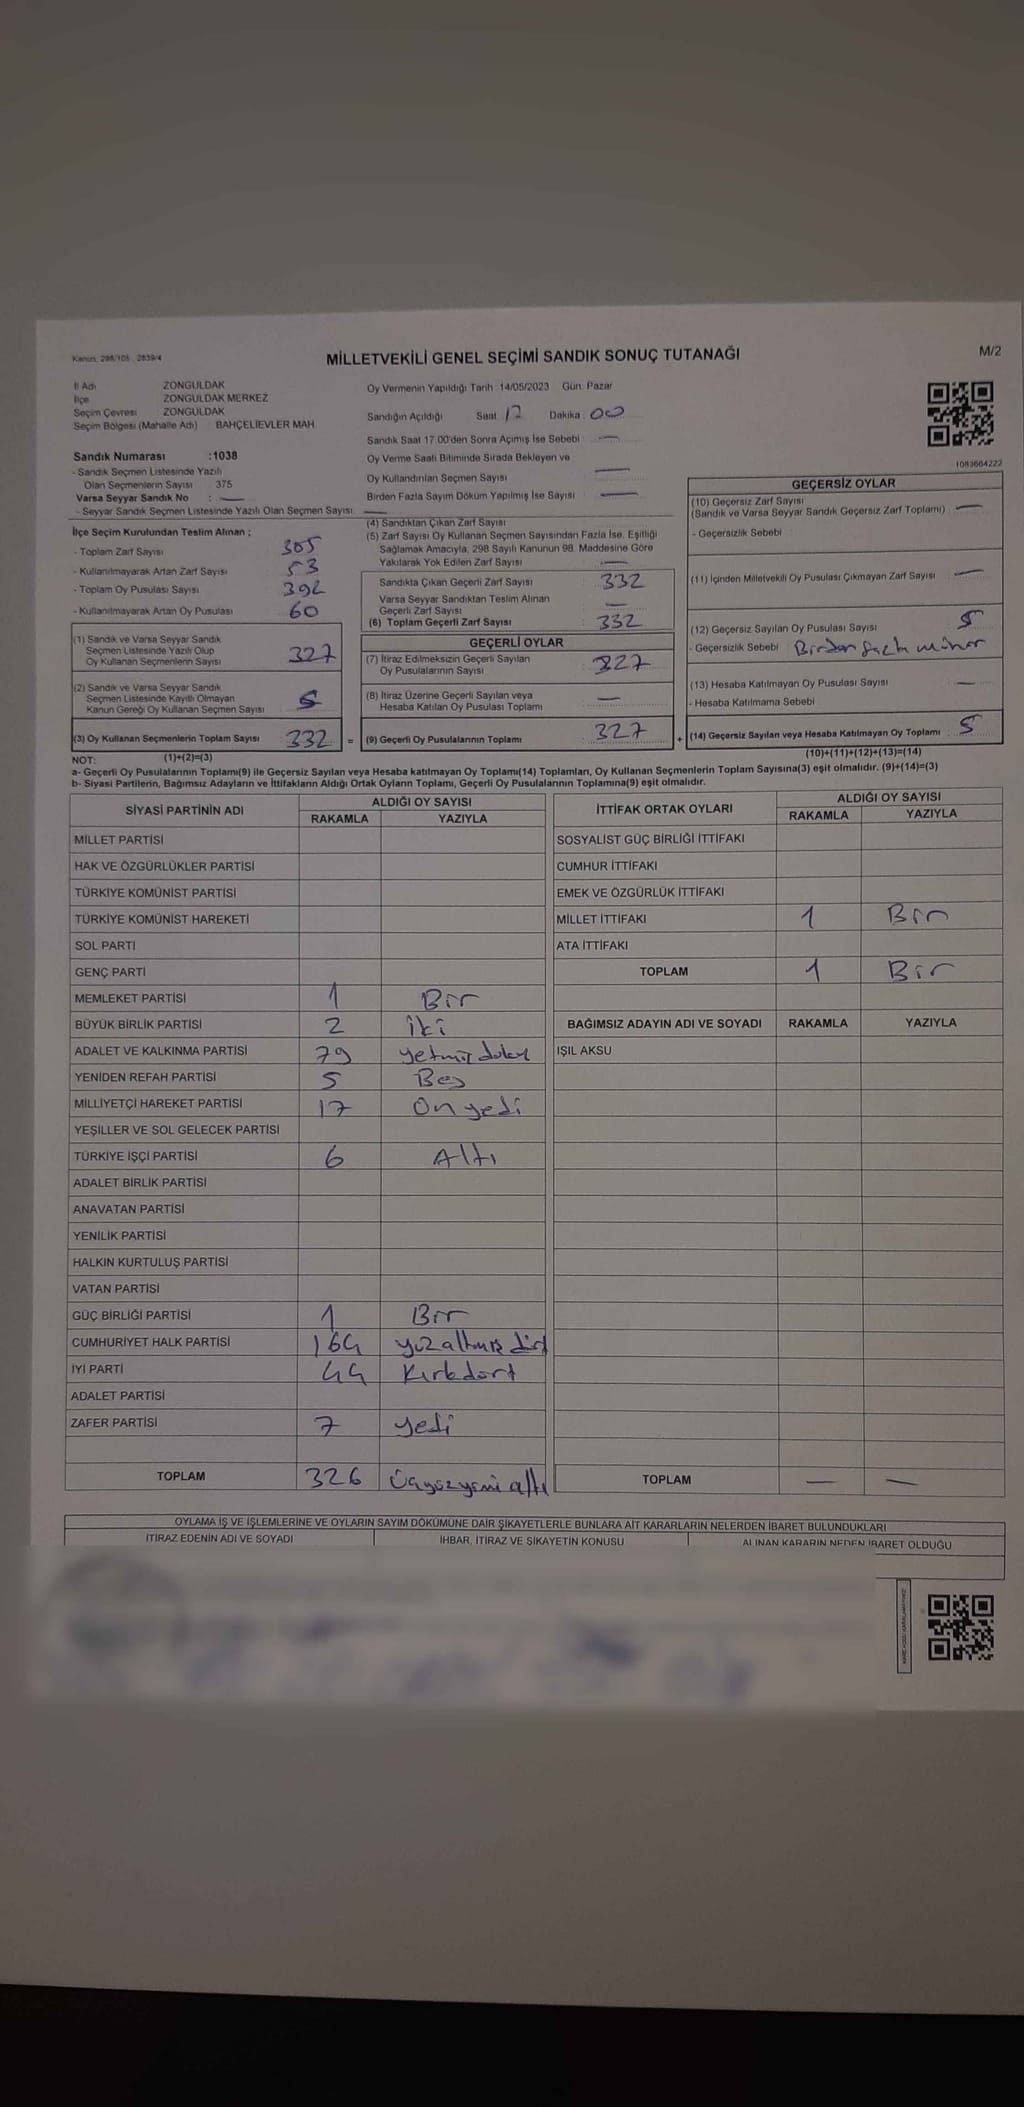 Kanun, 298/105 , 2839/4
MİLLETVEKİLİ GENEL SEÇİMİ SANDIK SONUÇ TUTANAĞI
M/2
İl Adı ZONGULDAK
İlçe ZONGULDAK MERKEZ
Seçim Çevresi ZONGULDAK
Seçim Bölgesi (Mahalle Adı) BAHÇELİEVLER MAH.
Sandık Numarası :1038
- Sandık Seçmen Listesinde Yazılı
Olan Seçmenlerin Sayısı 375
Varsa Seyyar Sandık No : —
- Seyyar Sandık Seçmen Listesinde Yazılı Olan Seçmen Sayısı: —
Oy Vermenin Yapıldığı Tarih :14/05/2023 Gün: Pazar
Sandığın Açıldığı Saat: 17 Dakika: 00
Sandık Saat 17.00'den Sonra Açımış İse Sebebi: —
Oy Verme Saati Bitiminde Sırada Bekleyen ve
Oy Kullandırılan Seçmen Sayısı —
Birden Fazla Sayım Döküm Yapılmış İse Sayısı —
1083664222
İlçe Seçim Kurulundan Teslim Alınan ;
- Toplam Zarf Sayısı 385
- Kullanılmayarak Artan Zarf Sayısı 53
- Toplam Oy Pusulası Sayısı 392
- Kullanılmayarak Artan Oy Pusulası 60
(1) Sandık ve Varsa Seyyar Sandık
Seçmen Listesinde Yazılı Olup
Oy Kullanan Seçmenlerin Sayısı 327
(2) Sandık ve Varsa Seyyar Sandık
Seçmen Listesinde Kayıtlı Olmayan
Kanun Gereği Oy Kullanan Seçmen Sayısı 5
(3) Oy Kullanan Seçmenlerin Toplam Sayısı 332 =
(4) Sandıktan Çıkan Zarf Sayısı
(5) Zarf Sayısı Oy Kullanan Seçmen Sayısından Fazla İse, Eşitliği
Sağlamak Amacıyla, 298 Sayılı Kanunun 98. Maddesine Göre
Yakılarak Yok Edilen Zarf Sayısı —
Sandıkta Çıkan Geçerli Zarf Sayısı 332
Varsa Seyyar Sandıktan Teslim Alınan
Geçerli Zarf Sayısı —
(6) Toplam Geçerli Zarf Sayısı 332
GEÇERLİ OYLAR
(7) İtiraz Edilmeksizin Geçerli Sayılan
Oy Pusulalarının Sayısı 327
(8) İtiraz Üzerine Geçerli Sayılan veya
Hesaba Katılan Oy Pusulası Toplamı —
(9) Geçerli Oy Pusulalarının Toplamı 327 +
GEÇERSİZ OYLAR
(10) Geçersiz Zarf Sayısı
(Sandık ve Varsa Seyyar Sandık Geçersiz Zarf Toplamı) —
- Geçersizlik Sebebi
(11) İçinden Milletvekili Oy Pusulası Çıkmayan Zarf Sayısı —
(12) Geçersiz Sayılan Oy Pusulası Sayısı 5
- Geçersizlik Sebebi Birden fazla mühür
(13) Hesaba Katılmayan Oy Pusulası Sayısı —
- Hesaba Katılmama Sebebi
(14) Geçersiz Sayılan veya Hesaba Katılmayan Oy Toplamı 5
NOT: (1)+(2)=(3) (10)+(11)+(12)+(13)=(14)
a- Geçerli Oy Pusulalarının Toplamı(9) ile Geçersiz Sayılan veya Hesaba katılmayan Oy Toplamı(14) Toplamları, Oy Kullanan Seçmenlerin Toplam Sayısına(3) eşit olmalıdır. (9)+(14)=(3)
b- Siyasi Partilerin, Bağımsız Adayların ve İttifakların Aldığı Ortak Oyların Toplamı, Geçerli Oy Pusulalarının Toplamına(9) eşit olmalıdır.
SİYASİ PARTİNİN ADI ALDIĞI OY SAYISI
RAKAMLA YAZIYLA
MİLLET PARTİSİ
HAK VE ÖZGÜRLÜKLER PARTİSİ
TÜRKİYE KOMÜNİST PARTİSİ
TÜRKİYE KOMÜNİST HAREKETİ
SOL PARTİ
GENÇ PARTİ
MEMLEKET PARTİSİ 1 Bir
BÜYÜK BİRLİK PARTİSİ 2 İki
ADALET VE KALKINMA PARTİSİ 79 yetmiş dokuz
YENİDEN REFAH PARTİSİ 5 Beş
MİLLİYETÇİ HAREKET PARTİSİ 17 On yedi
YEŞİLLER VE SOL GELECEK PARTİSİ
TÜRKİYE İŞÇİ PARTİSİ 6 Altı
ADALET BİRLİK PARTİSİ
ANAVATAN PARTİSİ
YENİLİK PARTİSİ
HALKIN KURTULUŞ PARTİSİ
VATAN PARTİSİ
GÜÇ BİRLİĞİ PARTİSİ 1 Bir
CUMHURİYET HALK PARTİSİ 164 yüz altmış dört
İYİ PARTİ 44 Kırkdört
ADALET PARTİSİ
ZAFER PARTİSİ 7 yedi
TOPLAM 326 Üçyüzyirmi altı
İTTİFAK ORTAK OYLARI ALDIĞI OY SAYISI
RAKAMLA YAZIYLA
SOSYALİST GÜÇ BİRLİĞİ İTTİFAKI
CUMHUR İTTİFAKI
EMEK VE ÖZGÜRLÜK İTTİFAKI
MİLLET İTTİFAKI 1 Bir
ATA İTTİFAKI
TOPLAM 1 Bir
BAĞIMSIZ ADAYIN ADI VE SOYADI RAKAMLA YAZIYLA
IŞIL AKSU
TOPLAM — —
OYLAMA İŞ VE İŞLEMLERİNE VE OYLARIN SAYIM DÖKÜMÜNE DAİR ŞİKAYETLERLE BUNLARA AİT KARARLARIN NELERDEN İBARET BULUNDUKLARI
İTİRAZ EDENİN ADI VE SOYADI İHBAR, İTİRAZ VE ŞİKAYETİN KONUSU ALINAN KARARIN NEDEN İBARET OLDUĞU